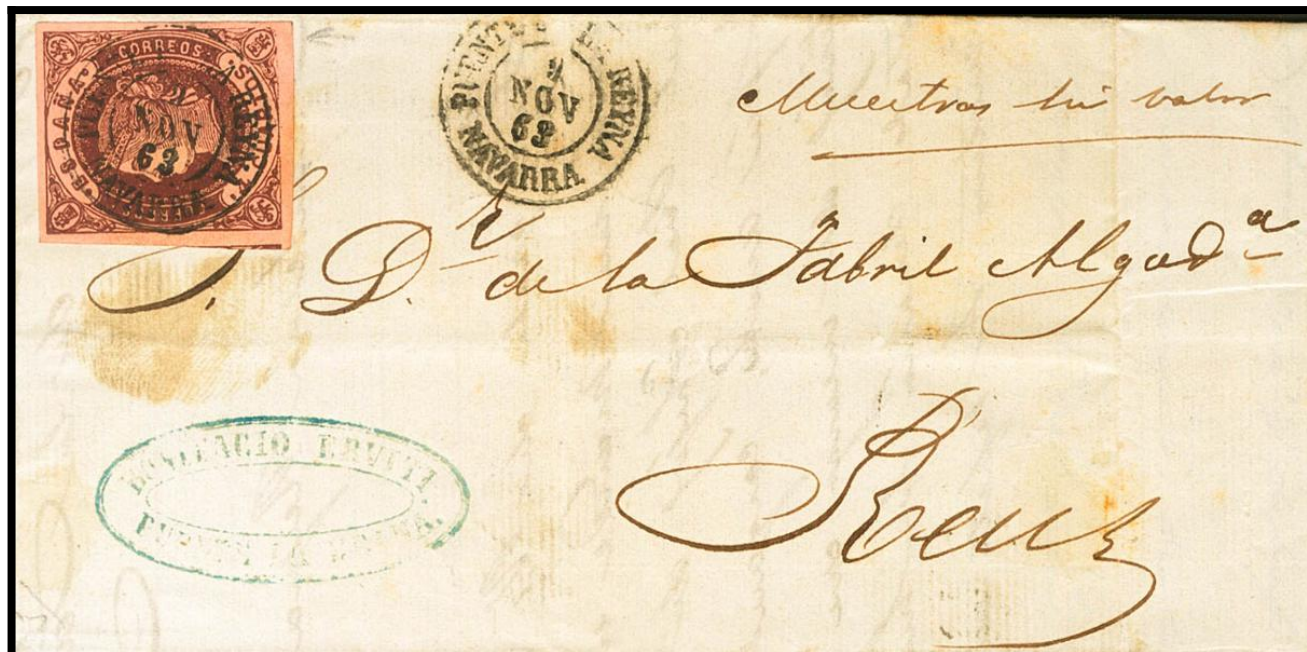 CORREOS
ESPAÑA
NAVARRA
NOV
63
PUENTE LA REYNA
2
NOV
63
NAVARRA
Muestras sin valor
S. D.r de la Fabril Algod.a
Reus
BONIFACIO ERVITI.
PUENTE LA REINA.